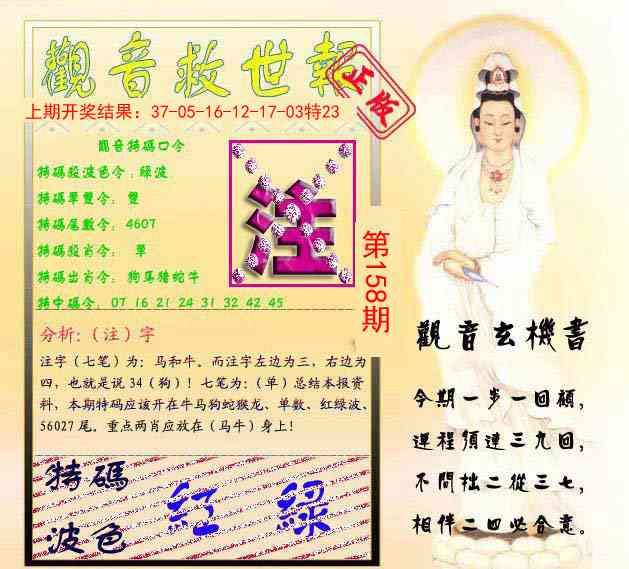 觀音救世報
正版
上期开奖结果：37-05-16-12-17-03特23
觀音特碼口令
特碼段波色令：綠波
特碼單雙令： 雙
特碼尾數令： 4607
特碼段肖令： 單
特碼出肖令： 狗馬猪蛇牛
特中碼令： 07 16 21 24 31 32 42 45
注
第158期
分析:（注）字
注字（七笔）为：马和牛。而注字左边为三，右边为
四，也就是说 34（狗）！七笔为：（单）总结本报资
料，本期特码应该开在牛马狗蛇猴龙、单数、红绿波、
56027 尾。重点两肖应放在（马牛）身上！
特碼
波色
紅 綠
觀音玄機書
今期一步一回頭，
運程須達三九回，
不問拙二從三七，
相伴二四必合意。